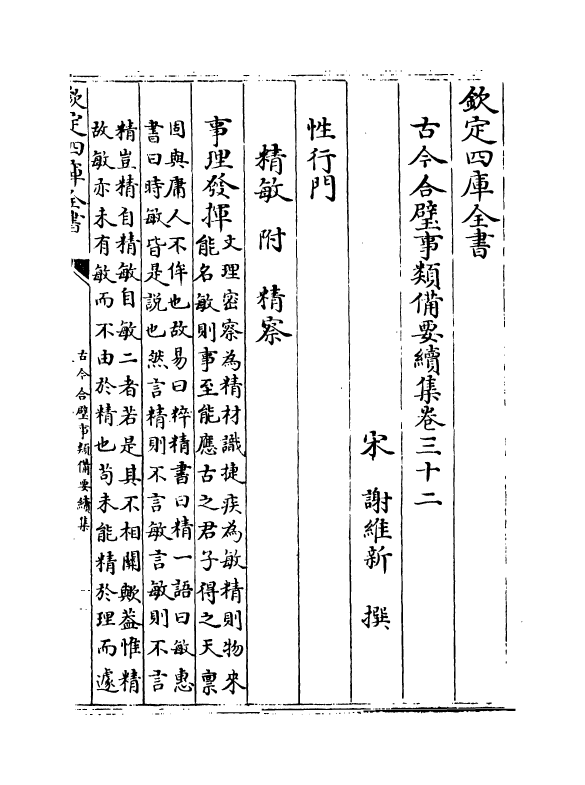 欽定四庫全書
古今合璧事類備要續集卷三十二
宋 謝維新 撰
性行門
精敏 附 精察
事理發揮
文理密察為精材識捷疾為敏精則物來
能名敏則事至能應古之君子得之天稟
固與庸人不侔也故易曰粹精書曰精一語曰敏惠
書曰時敏皆是說也然言精則不言敏言敏則不言
精豈精自精敏自敏二者若是其不相關歟蓋惟精
故敏亦未有敏而不由於精也苟未能精於理而遽
欽定四庫全書
古今合璧事類備要續集